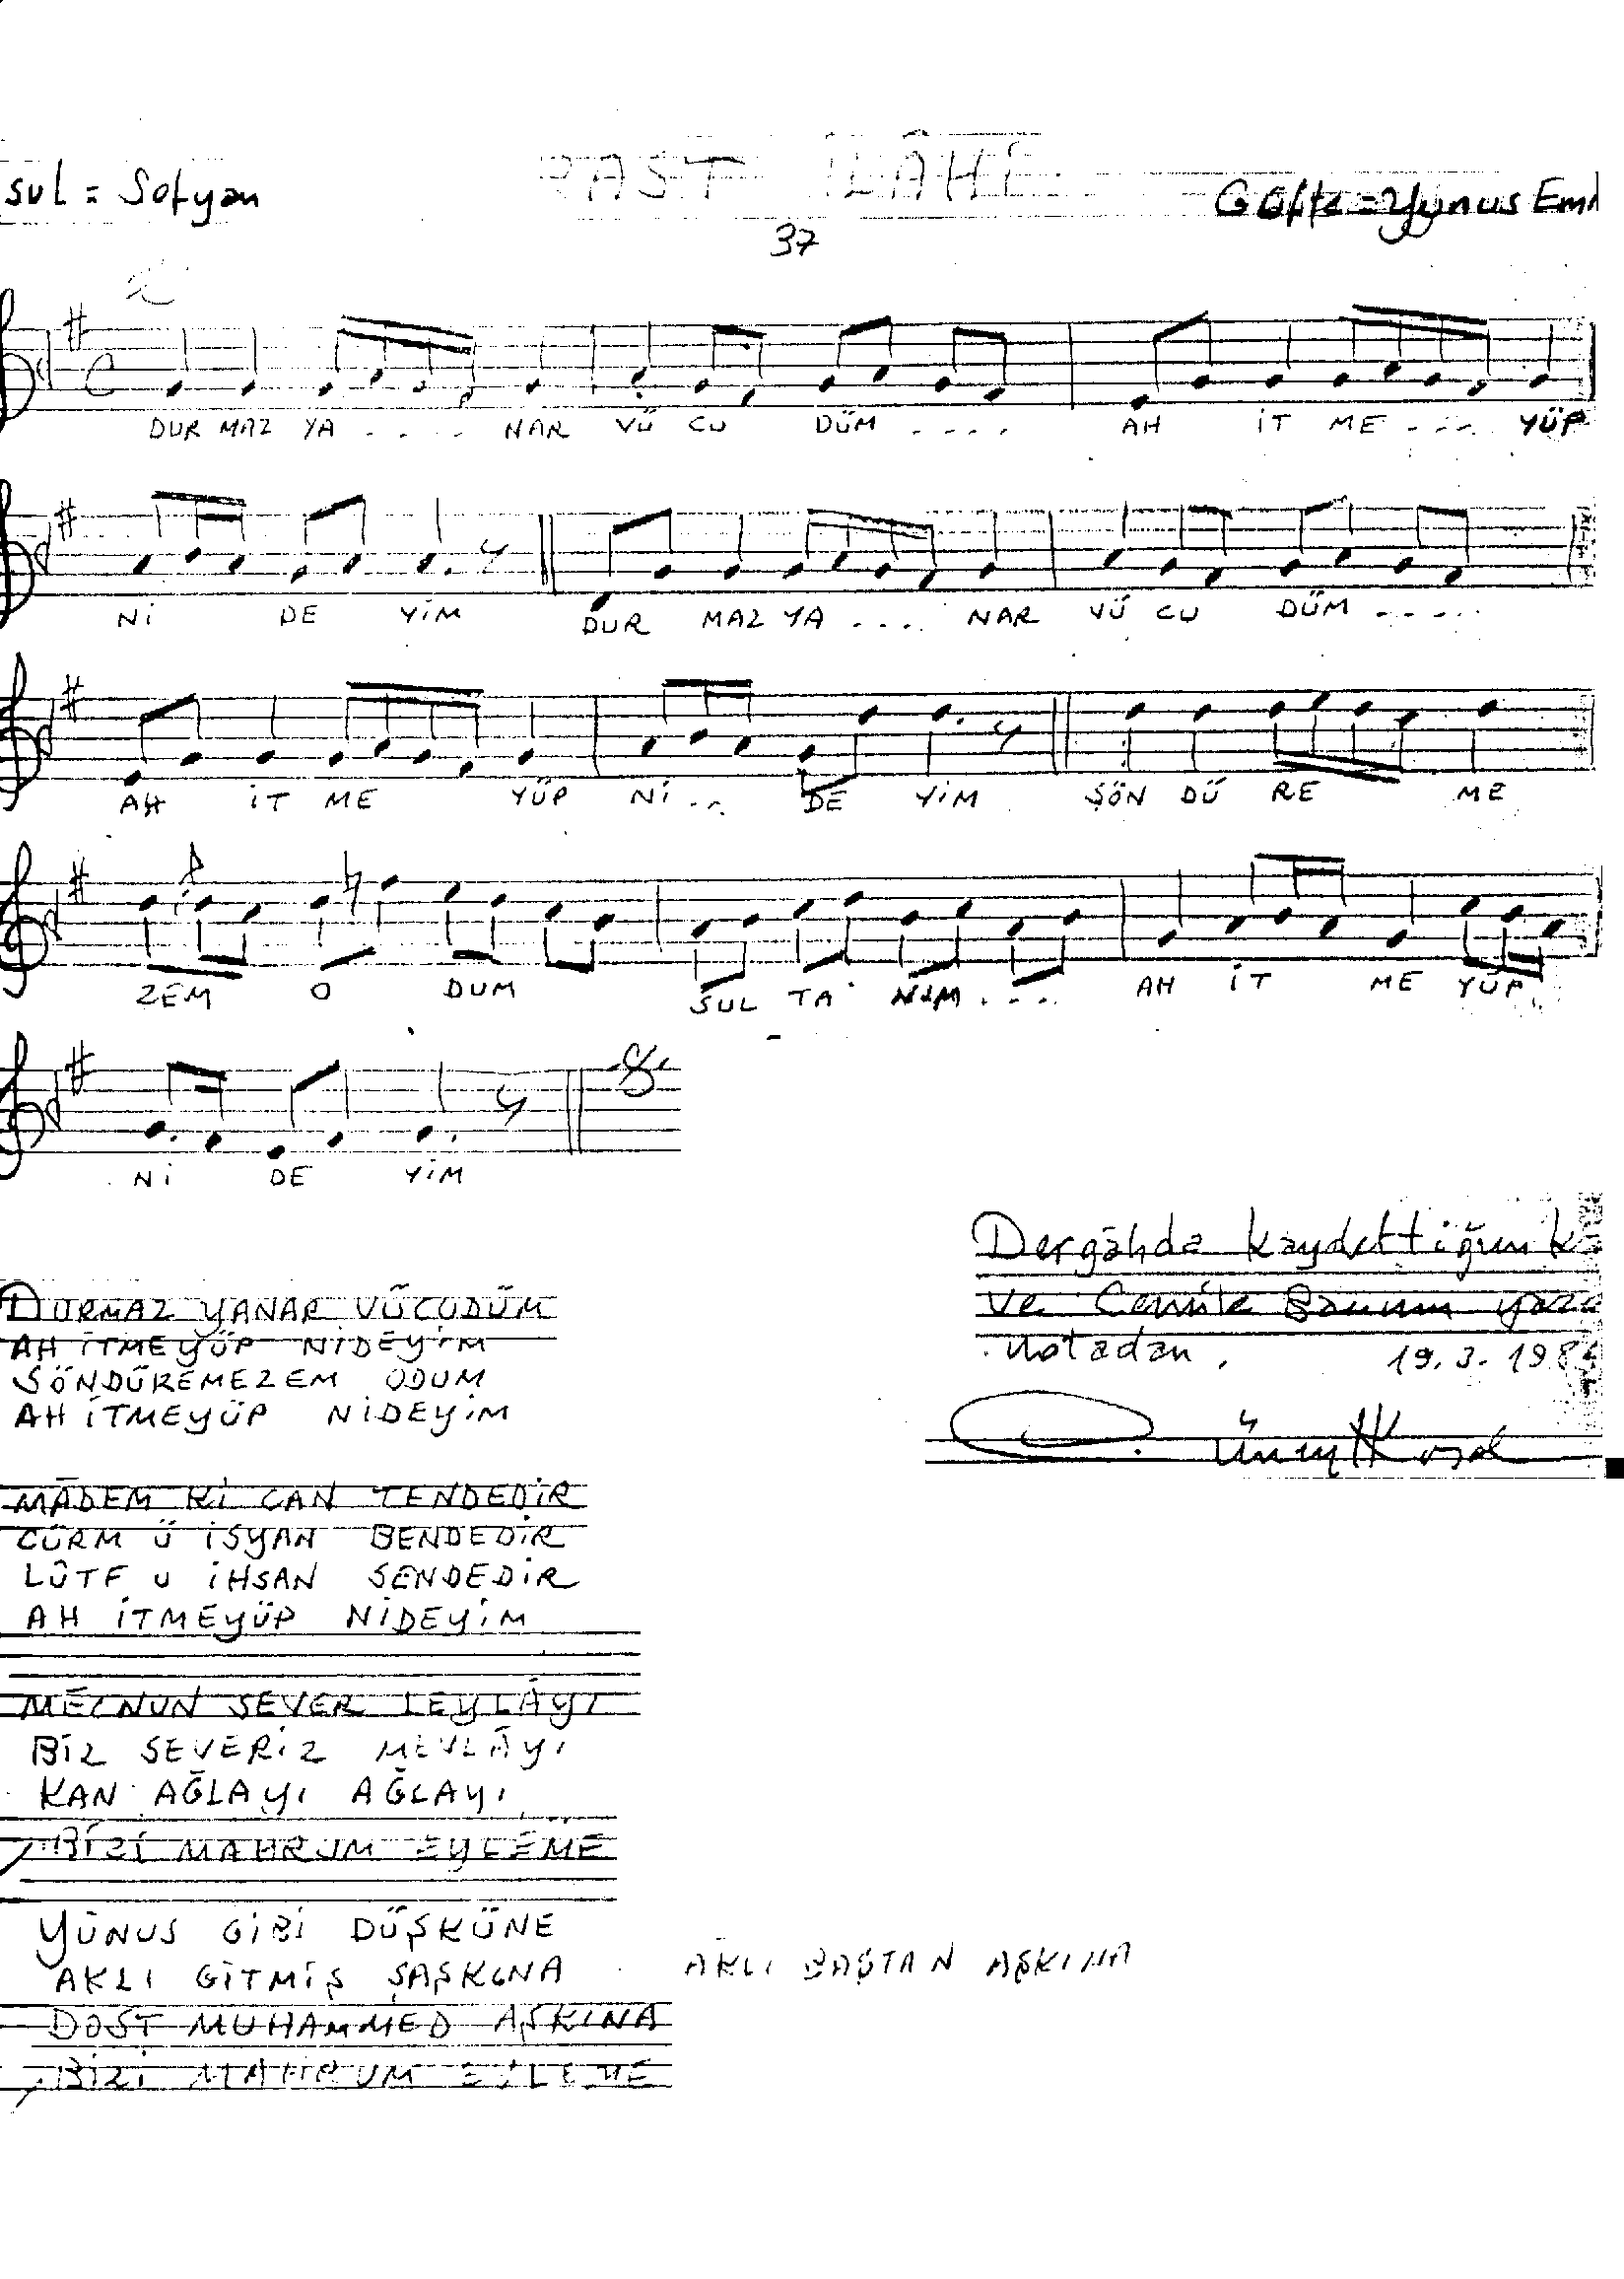 sul = Sofyan
RAST İLÂHİ
Güfte = Yunus Em
37
DUR MAZ YA . . . . NAR VÜ CU DÜM . . . . AH İT ME . . . . YÜP
Nİ DE YİM DUR MAZ YA . . . . NAR VÜ CU DÜM . . . . .
AH İT ME YÜP Nİ . . . DE YİM SÖN DÜ RE ME
ZEM O DUM SUL TA NIM . . . . AH İT ME YÜP . .
Nİ DE YİM
Dergâhda kaydettiğim
ve Cemile Banım
notadan. 19.3.198
DURMAZ YANAR VÜCUDÜM
AH İTMEYÜP NİDEYİM
SÖNDÜREMEZEM ODUM
AH İTMEYÜP NİDEYİM
MÂDEM Kİ CAN TENDEDİR
CÜRM Ü İSYAN BENDEDİR
LÛTF U İHSAN SENDEDİR
AH İTMEYÜP NİDEYİM
MECNUN SEVER LEYLÂYI
BİZ SEVERİZ MEVLÂYI
KAN AĞLAYI AĞLAYI
BİZİ MAHRUM EYLEME
YÛNUS GİBİ DÜŞKÜNE
AKLI GİTMİŞ ŞAŞKINA AKLI BAŞTAN AŞKINA
DOST MUHAMMED AŞKINA
BİZİ MAHRUM EYLEME